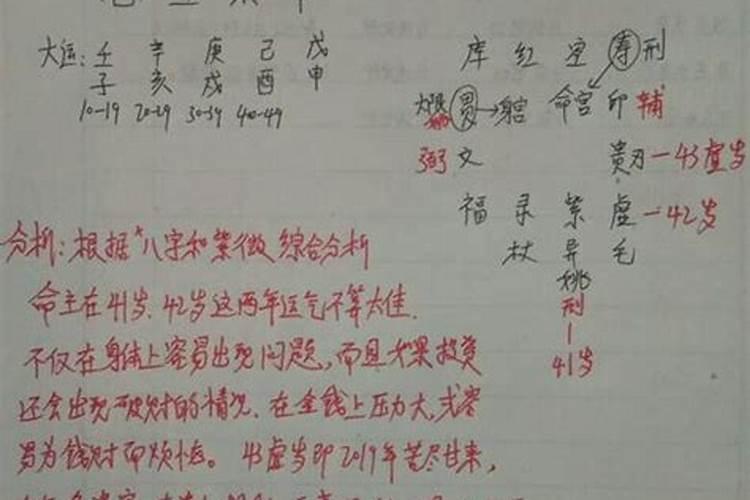 大运: 壬 辛 庚 己 戊
子 亥 戌 酉 申
10-19 20-29 30-39 40-49
库 红 空 寿 刑
大限 贯→ 命宫 印 辅
弼 文 贵刃-43虚岁
福 录 紫 虚-42岁
杖 异 毛
姚
刑
41岁
分析: 根据"八字和紫微综合分析
命主在41岁、42岁这两年运气不算太佳.
不仅在身体上容易出现问题,而且如果投资
还会出现破财的情况.在金钱上压力大,或容
易为钱财而烦恼。43虚岁即2019年苦尽甘来,